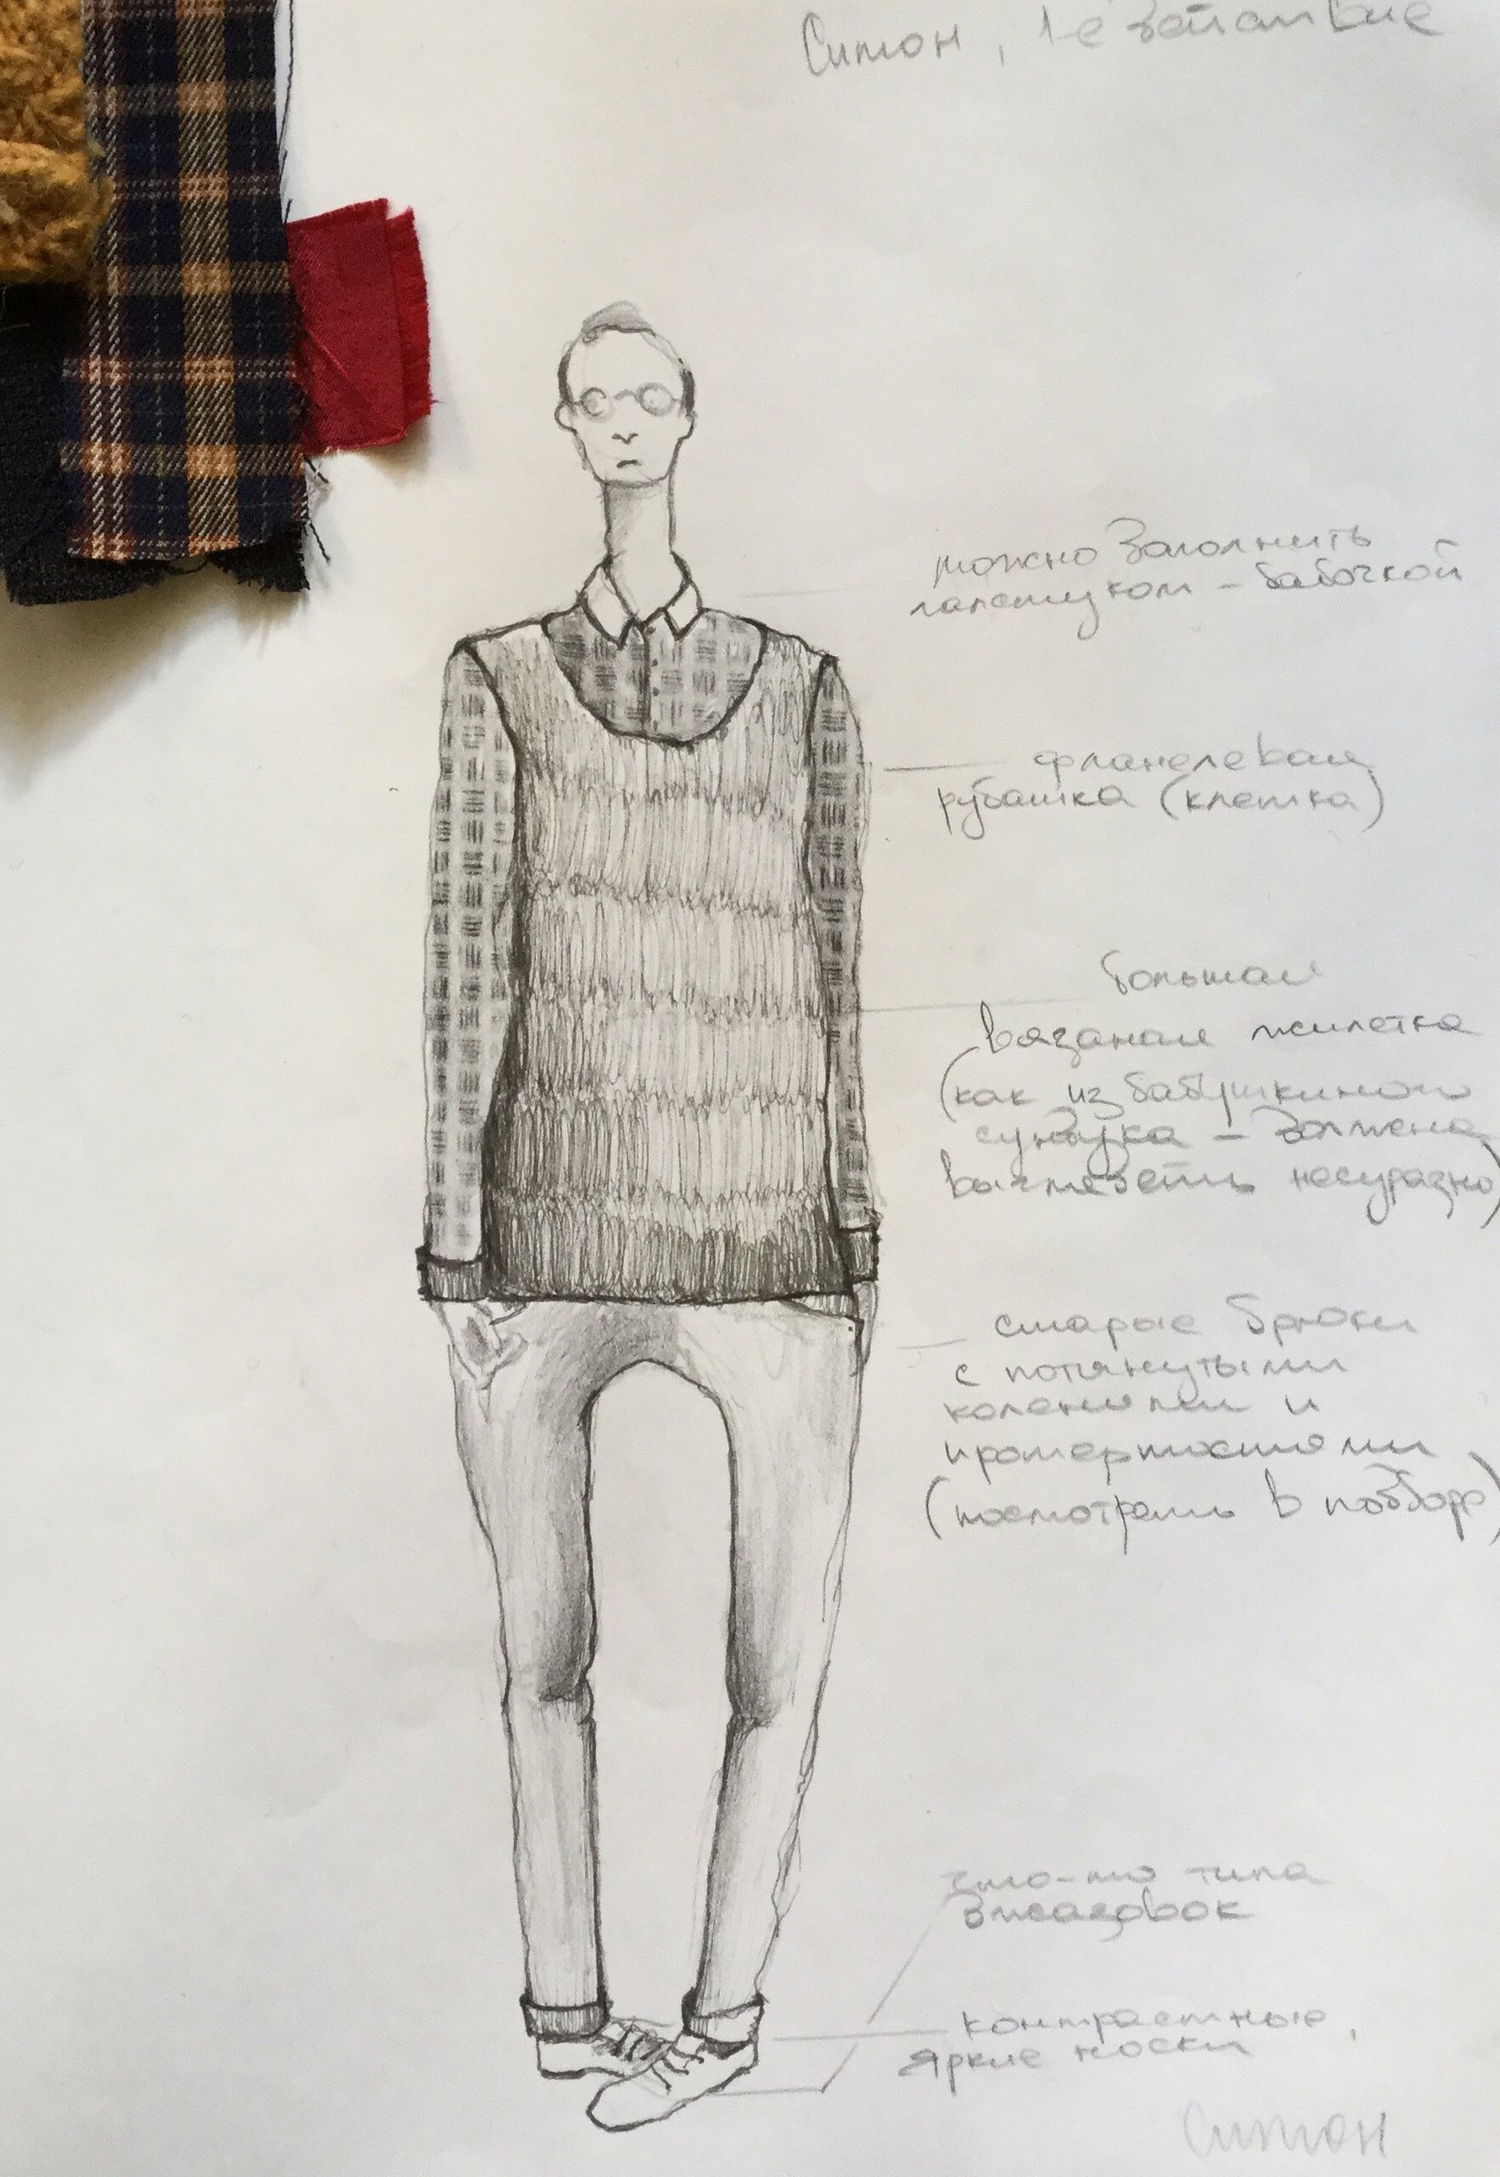 Симон, 1-е
можно дополнить
галстуком - бабочкой
фланелевая
рубашка (клетка)
большая
вязаная жилетка
(как из бабушкиного
сундука - должна
выглядеть несуразно)
старые брюки
с потянутыми
коленями и
протертостями
(посмотреть в подборе)
что-то типа
эксадовок
контрастные,
яркие носки
Симон